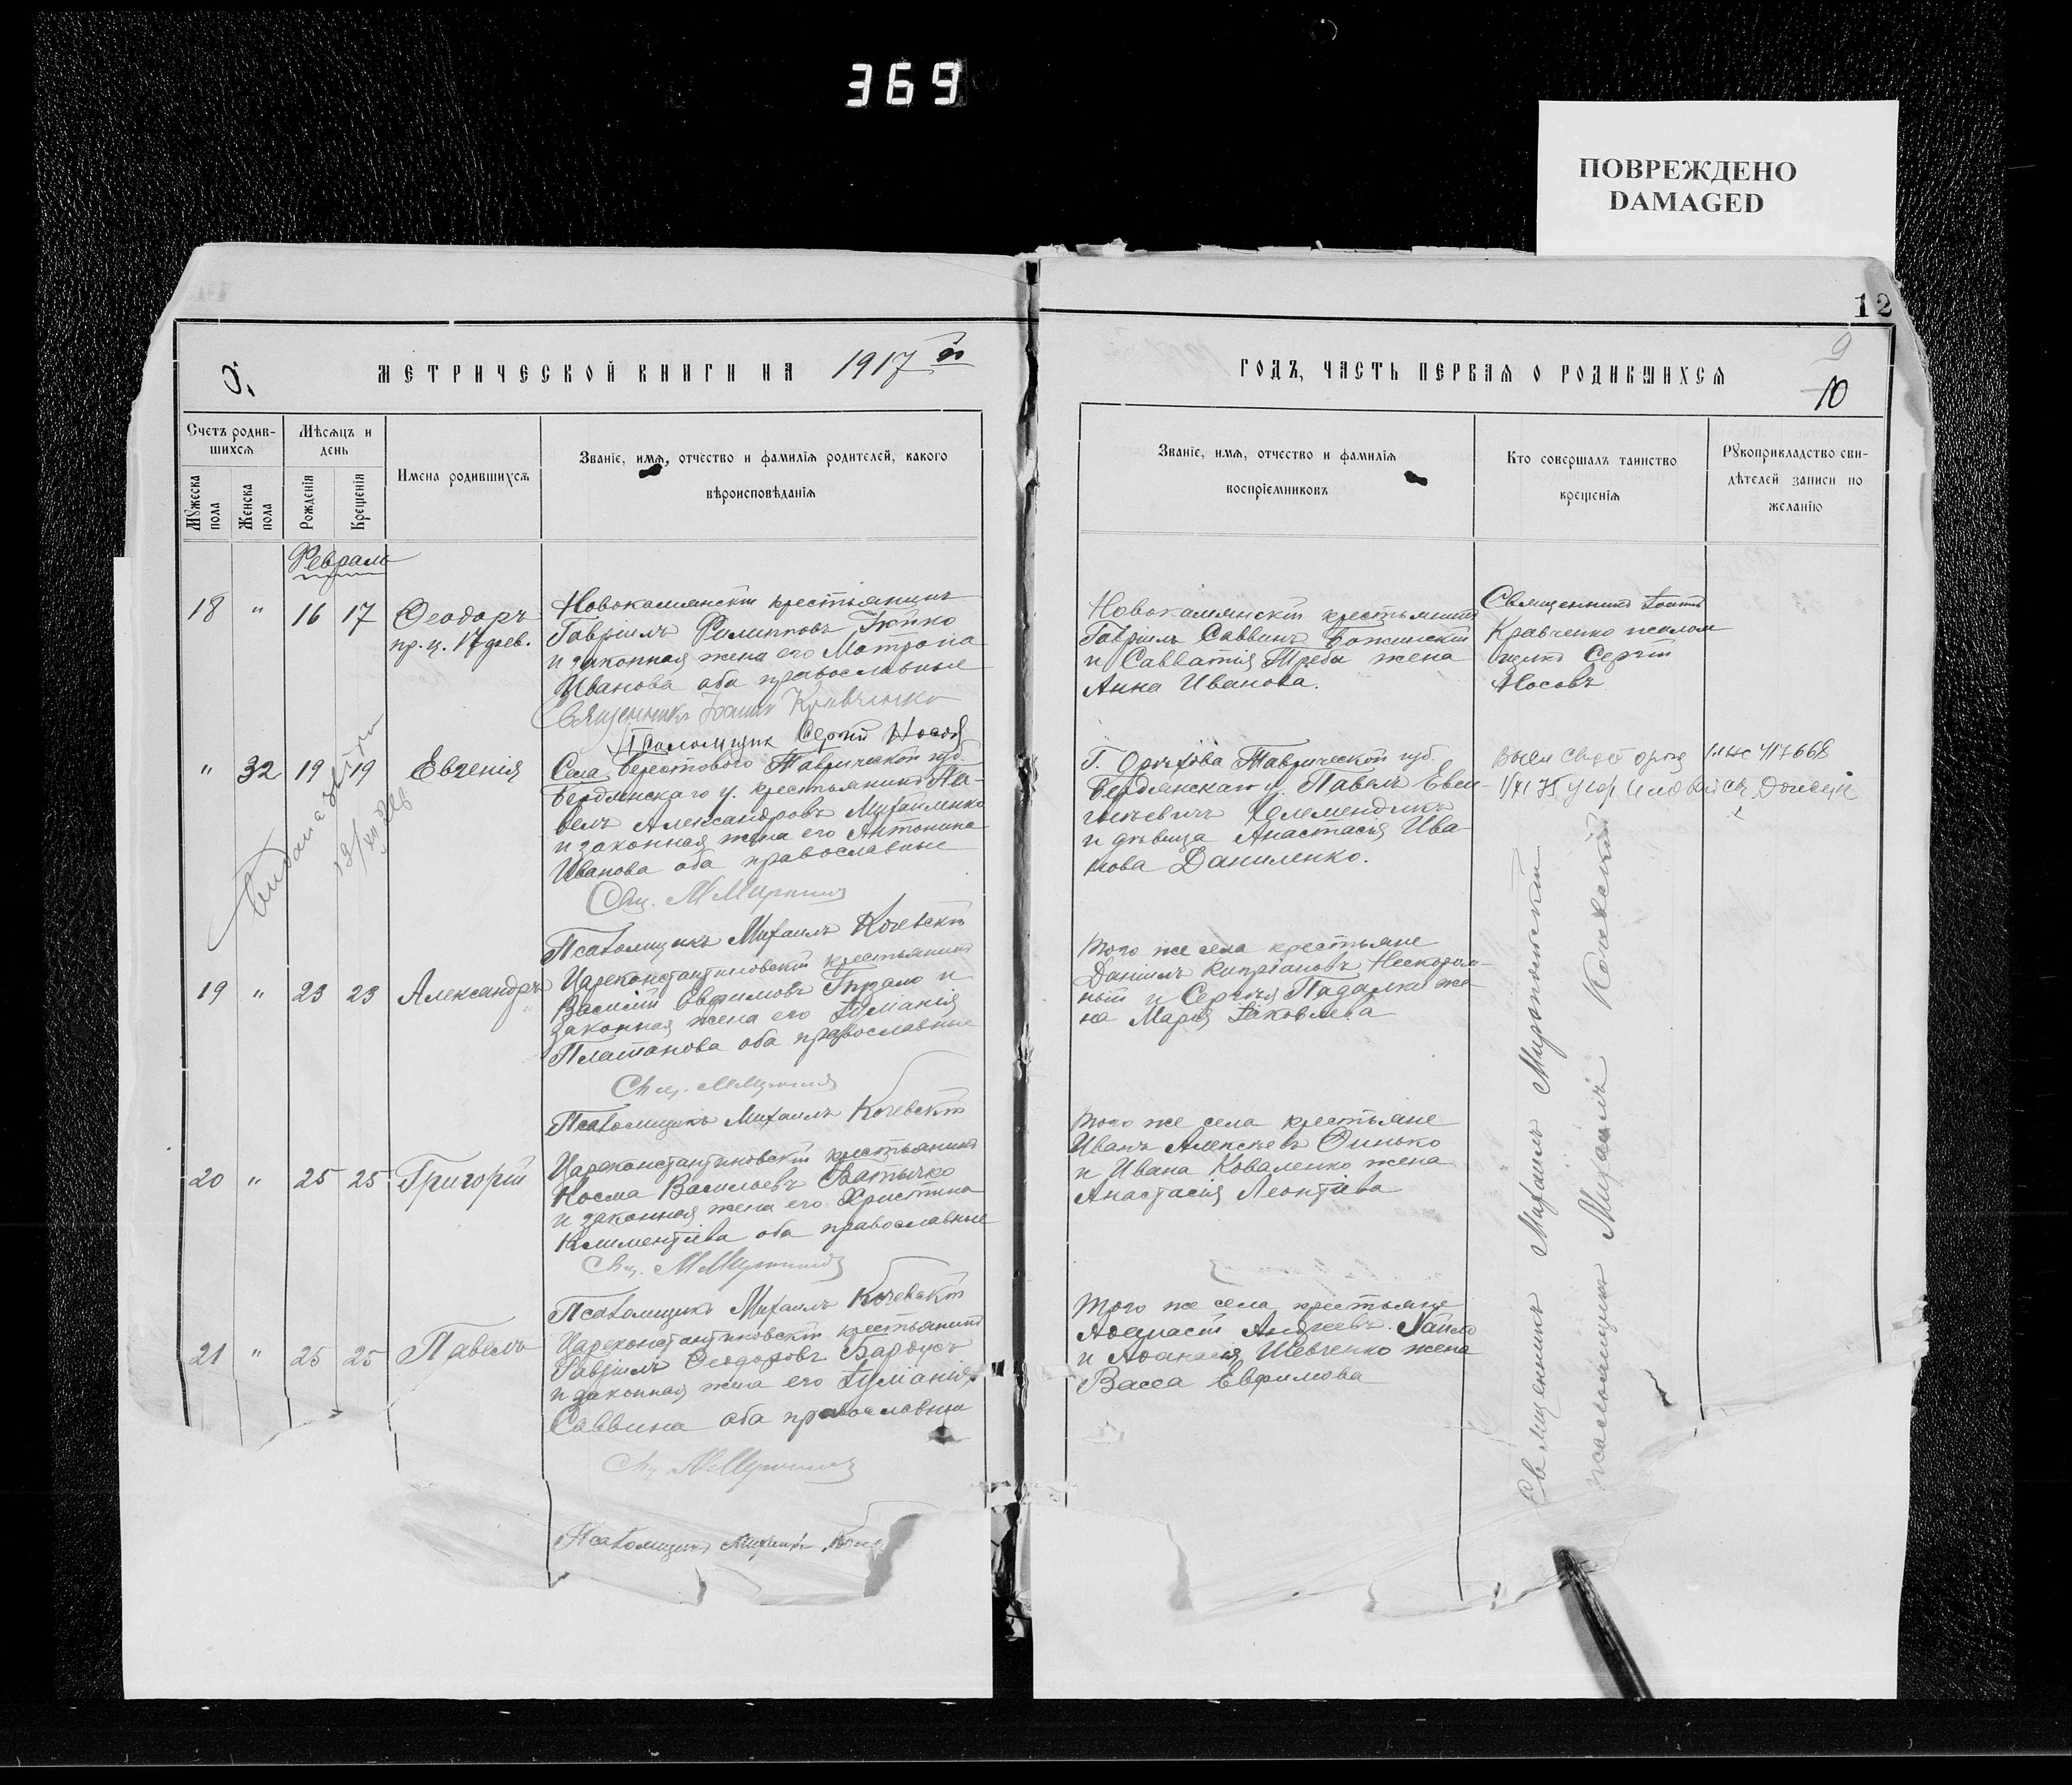 369
ПОВРЕЖДЕНО
DAMAGED
12
МЕТРИЧЕСКОЙ КНИГИ НА 1917 й
ГОДЪ, ЧАСТЬ ПЕРВАЯ О РОДИВШИХСЯ
9
10
Счетъ родив-
шихся
Мужеска пола
Женска пола
Мѣсяцъ и
день
Рожденія
Крещенія
Имена родившихся
Званіе, имя, отчество и фамилія родителей, какого
вѣроисповѣданія
Званіе, имя, отчество и фамилія
воспріемниковъ
Кто совершалъ таинство
крещенія
Рукоприкладство сви-
дѣтелей записи по
желанію
Февраль
18 " 16 17 Ѳеодоръ
пр. ц. 17 фев.
Новокамянскій крестьянинъ
Гавріилъ Филипповъ
и законная жена его Матрона
Иванова оба православные
Священникъ Іоаннъ Кравченко
Псаломщикъ Сергій Носовъ
Новокамянскій крестьянинъ
Гавріилъ Саввинъ
и Савватія Треба жена
Анна Иванова.
Священникъ Іоаннъ
Кравченко псалом
щикъ Сергій
Носовъ
" 32 19 19 Евгенія
Села Берестового Таврической губ.
Бердянскаго у. крестьянинъ Па-
велъ Александровъ Михайленко
и законная жена его Антонина
Иванова оба православные
Свящ.
Псаломщикъ Михаилъ Кочевскій
Г. Орѣхова Таврической губ.
Бердянскаго у. Павелъ Евси-
гнѣевичъ
и дѣвица Анастасія Ива-
нова Даниленко.
417668
19 " 23 23 Александръ
Цареконстантиновскій крестьянинъ
Василій Евфимовъ
законная жена его Іуліанія
Платонова оба православные
Свящ.
Псаломщикъ Михаилъ Кочевскій
Того же села крестьяне
Даніилъ Кипріановъ Нескором-
ный и Сергія Падалки же
на Марія Іаковлева
20 " 25 25 Григорій
Цареконстантиновскій крестьянинъ
Косма Васильевъ
и законная жена его Христина
Климентіева оба православные
Свящ.
Псаломщикъ Михаилъ Кочевскій
Того же села крестьяне
Иванъ Алексѣевъ
и Ивана Коваленко жена
Анастасія Леонтіева
21 " 25 25 Павелъ
Цареконстантиновскій крестьянинъ
Гавріилъ Ѳеодоровъ
и законная жена его Іуліанія
Саввина оба православные
Свящ.
Псаломщикъ Михаилъ
Того же села крестьяне
Аѳанасій Андреевъ
и Аѳанасія Шевченко жена
Васса Евфимова
Священникъ Михаилъ
псаломщикъ Михаилъ Кочевскій